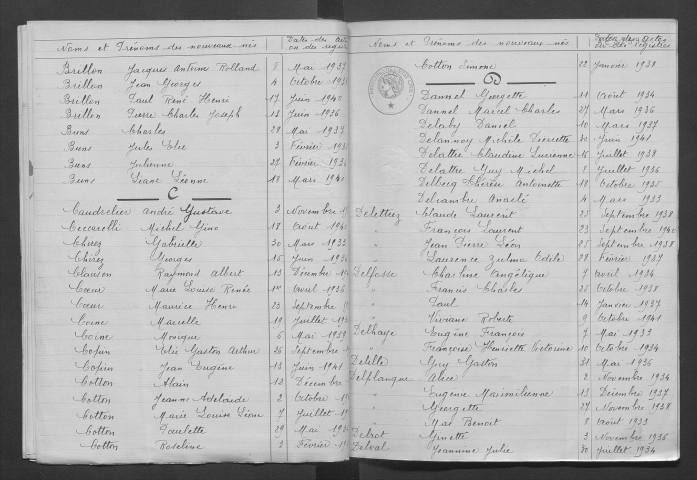 Noms et Prénoms des nouveaux nés Dates des
Brillon Jacques Antoine Rolland 8 Mai 1937
Brillon Jean Georges 4 Octobre
Brillon Paul René Henri 17 Juin 1940
Brillon Pierre Charles Joseph 13 Juin 1936
Buns Charles 28 Mai 1937
Buns Jules Elie 3 Février
Buns Julienne 22 Février
Buns Liane Léonne 18 Mars
C
Caudrelier André Gustave 3 Novembre
Ceccarelli Michel Gino 18 Août
Cherez Gabrielle 30 Mars 1933
Cherez Georges 15 Juin
Clauson Raymond Albert 13 Décembre
Cœur Marie Louise Renée Avril 1936
Cœur Maurice Henri 23 Septembre
Coine Marcelle 19 Juillet
Coine Monique 6 Mai 1939
Copin Elie Gaston Arthur 26 Septembre
Copin Jean Eugène 13 Juin 1941
Cotton Alain 12 Décembre
Cotton Jeanne Adelaïde 2 Octobre
Cotton Marie Louise 7 Juillet
Cotton Paulette 29 Mai
Cotton Roseline 3 Février
Noms et Prénoms des nouveaux nés Dates des Actes
Cotton Simone 22 Janvier 1938
D
Dannel Georgette 11 Août 1934
Dannel Marcel Charles 27 Mars 1936
Delaby Daniel 10 Mars 1937
Delannoy Michèle Pierrette 30 Juin 1941
Delattre Claudine Lucienne 15 Juillet 1938
Delattre Guy Michel 8 Juillet 1936
Delberg Thérèse Antoinette 18 Octobre 1935
Delcambre 4 Mars 1933
Delettrez Claude Laurent 25 Septembre 1938
" François Laurent 23 Septembre 1940
" Jean Pierre Léon 25 Septembre 1938
" Laurence Zulma Odile 28 Février 1937
Delfosse Charline Angélique 7 Avril 1934
" Francis Charles 26 Octobre 1938
" Paul 14 Janvier 1937
" Viviane Roberte 9 Octobre 1941
Delhaye Eugène François 7 Mai 1933
" Françoise Henriette Victorine 10 Octobre 1934
Delille Guy Gaston 31 Mai 1936
Delplanque Alice 2 Novembre 1934
" Eugène Maximilienne 13 Décembre 1937
" Georgette 27 Novembre 1938
" Max Benoit 8 Août 1933
Delrot Ginette 3 Novembre 1936
Delval Jeannine Julie 30 Juillet 1934